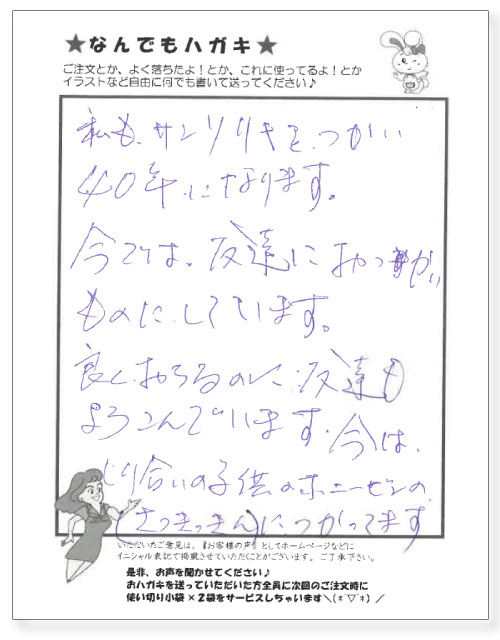 ★なんでもハガキ★
ご注文とか、よく落ちたよ!とか、これに使ってるよ!とか
イラストなど自由に何でも書いて送ってください♪
私も、サンソリキを、つかい
40年になります。
今では。友達におつかい
ものに、しています。
良くおちるのに、友達も
よろこんでいます。今は、
しり合いの子供の
(さっきっきん)に、つかってます
いただいたご意見は、『お客様の声』としてホームページなどに
イニシャル表記で掲載させていただくことがございます。ご了承下さい。
是非、お声を聞かせてください♪
おハガキを送っていただいた方全員に次回のご注文時に
使い切り小袋×2袋をサービスしちゃいます＼(*´▽`*)／